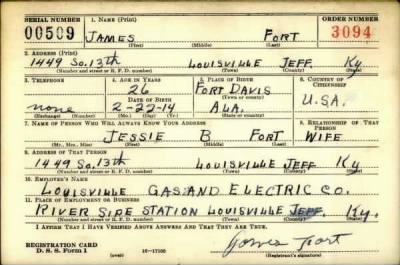 SERIAL NUMBER 1. NAME (Print) ORDER NUMBER
00509 JAMES FORT 3094
(First) (Middle) (Last)
2. ADDRESS (Print)
1449 So. 13th LOUISVILLE JEFF. Ky
(Number and street or R. F. D. number) (Town) (County) (State)
3. TELEPHONE 4. AGE IN YEARS 5. PLACE OF BIRTH 6. COUNTRY OF CITIZENSHIP
26 FORT DAVIS
DATE OF BIRTH (Town or county)
none 2-22-14 ALA. U.S.A.
(Exchange) (Number) (Mo.) (Day) (Yr.) (State or country)
7. NAME OF PERSON WHO WILL ALWAYS KNOW YOUR ADDRESS 8. RELATIONSHIP OF THAT PERSON
JESSIE B FORT WIFE
(Mr., Mrs., Miss) (First) (Middle) (Last)
9. ADDRESS OF THAT PERSON
1449 So. 13th LOUISVILLE JEFF Ky
(Number and street or R. F. D. number) (Town) (County) (State)
10. EMPLOYER'S NAME
LOUISVILLE GAS AND ELECTRIC CO.
11. PLACE OF EMPLOYMENT OR BUSINESS
RIVER SIDE STATION LOUISVILLE JEFF. Ky.
(Number and street or R. F. D. number) (Town) (County) (State)
I AFFIRM THAT I HAVE VERIFIED ABOVE ANSWERS AND THAT THEY ARE TRUE.
REGISTRATION CARD
D. S. S. Form 1 (over) 16—17105 James Fort
(Registrant's signature)